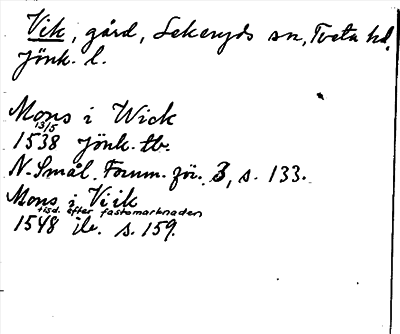 Vik, gård, Lekeryds sn, Tveta hd,
Jönk. l.
Mons i Wick
13/5
1538 Jönk. tb.
N. Smål. Fornm. för. 3, s. 133.
Mons i Viik
tisd. efter fastomarknaden
1548 ib. s. 159.